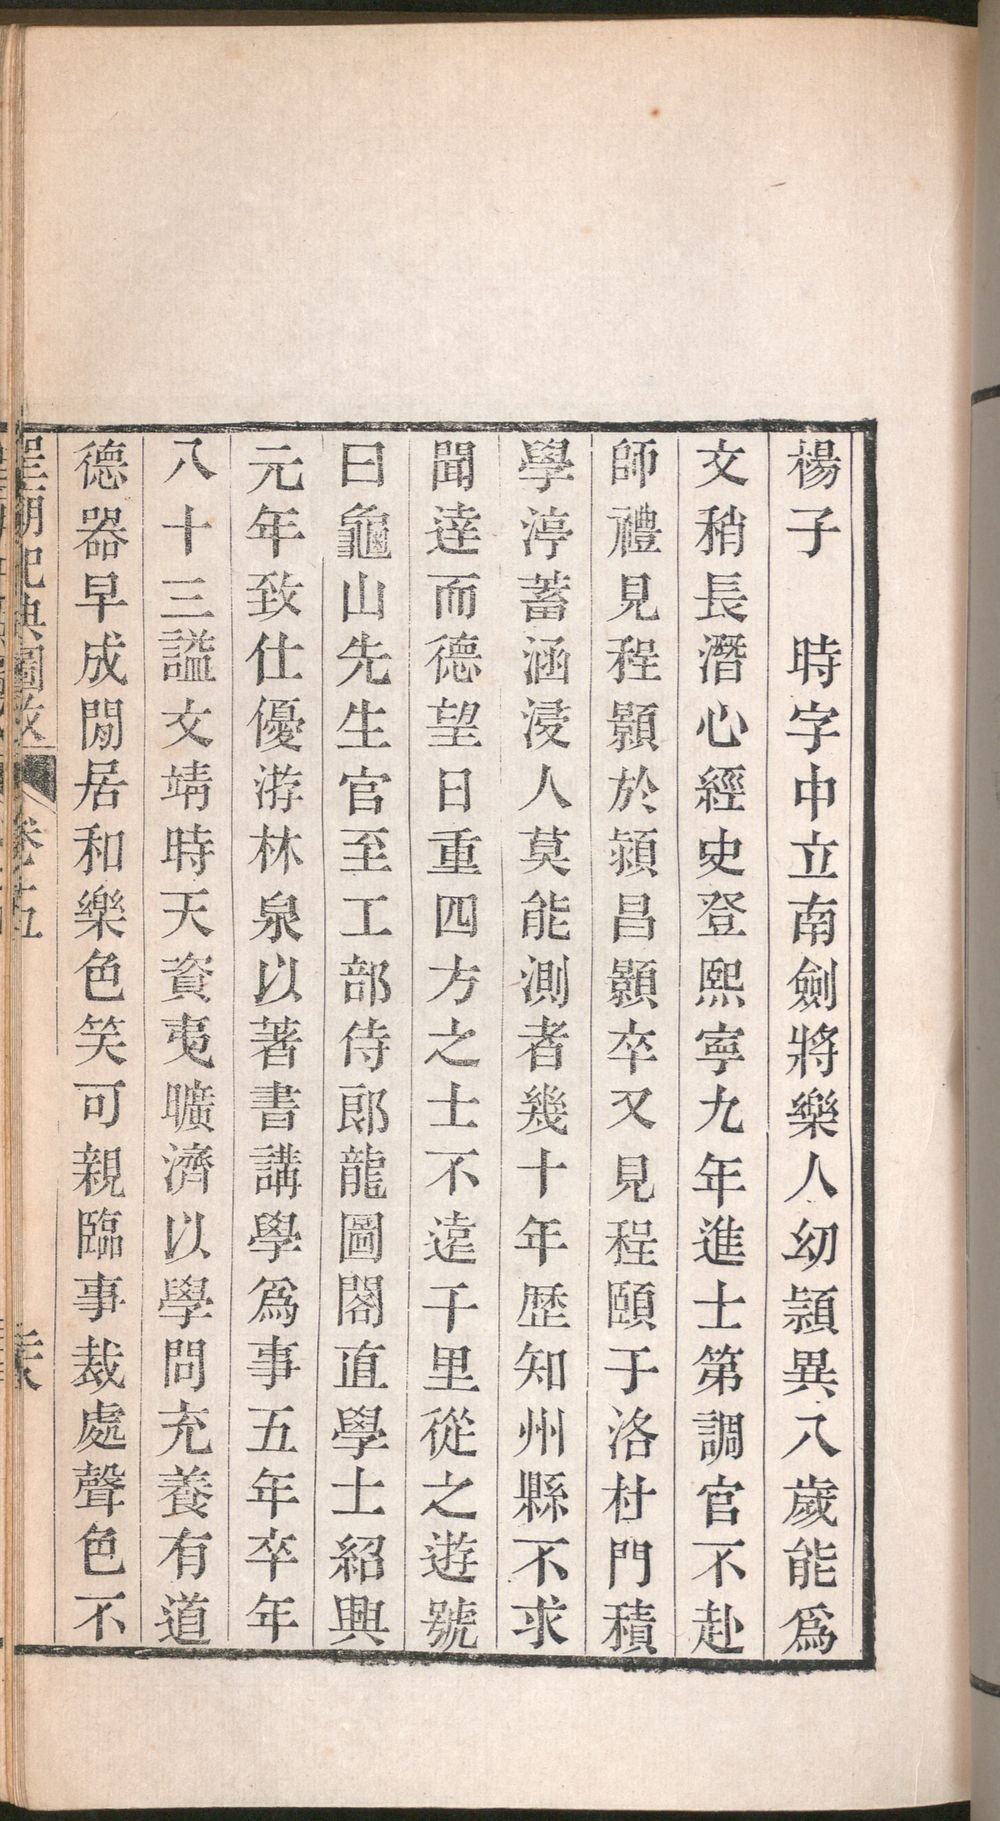 楊子　時字中立南劍將樂人幼頴異八歲能爲
文稍長潛心經史登熙寧九年進士第調官不赴
師禮見程顥於潁昌顥卒又見程頤于洛杜門積
學渟蓄涵浸人莫能測者幾十年歷知州縣不求
聞達而德望日重四方之士不遠千里從之遊號
曰龜山先生官至工部侍郎龍圖閣直學士紹興
元年致仕優游林泉以著書講學爲事五年卒年
八十三謚文靖時天資夷曠濟以學問充養有道
德器早成閒居和樂色笑可親臨事裁處聲色不
皇朝祀典圖考